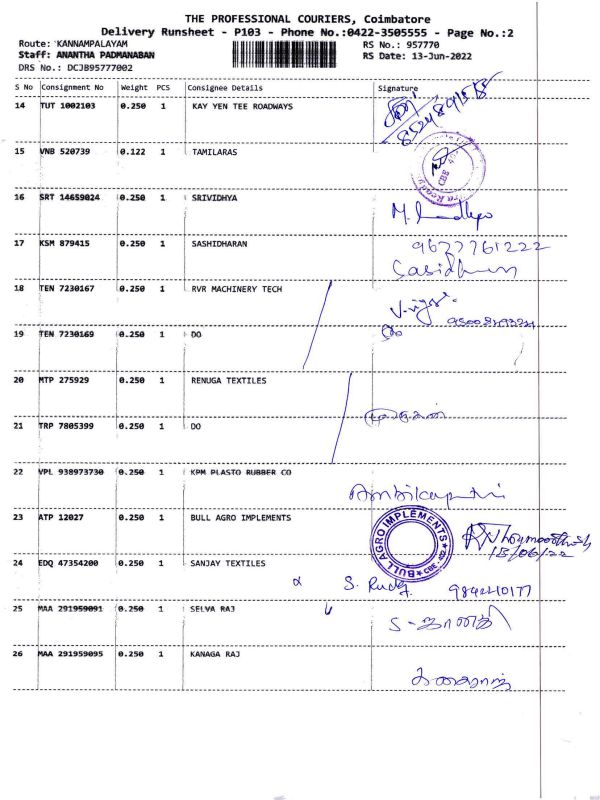 THE PROFESSIONAL COURIERS, Coimbatore
Delivery Runsheet - P103 - Phone No.:0422-3505555 - Page No.:2
Route: KANNAMPALAYAM RS No.: 957770
Staff: ANANTHA PADMANABAN RS Date: 13-Jun-2022
DRS No.: DCJB95777002
S No Consignment No Weight PCS Consignee Details Signature
14 TUT 1002103 0.250 1 KAY YEN TEE ROADWAYS
15 VNB 520739 0.122 1 TAMILARAS
CBE
16 SRT 14659024 0.250 1 SRIVIDHYA
17 KSM 879415 0.250 1 SASHIDHARAN
9677761222
18 TEN 7230167 0.250 1 RVR MACHINERY TECH
19 TEN 7230169 0.250 1 DO
20 MTP 275929 0.250 1 RENUGA TEXTILES
21 TRP 7805399 0.250 1 DO
22 VPL 938973730 0.250 1 KPM PLASTO RUBBER CO
23 ATP 12027 0.250 1 BULL AGRO IMPLEMENTS
BULL AGRO IMPLEMENTS CBE-402
13/06/22
24 EDQ 47354200 0.250 1 SANJAY TEXTILES
25 MAA 291959091 0.250 1 SELVA RAJ
26 MAA 291959095 0.250 1 KANAGA RAJ